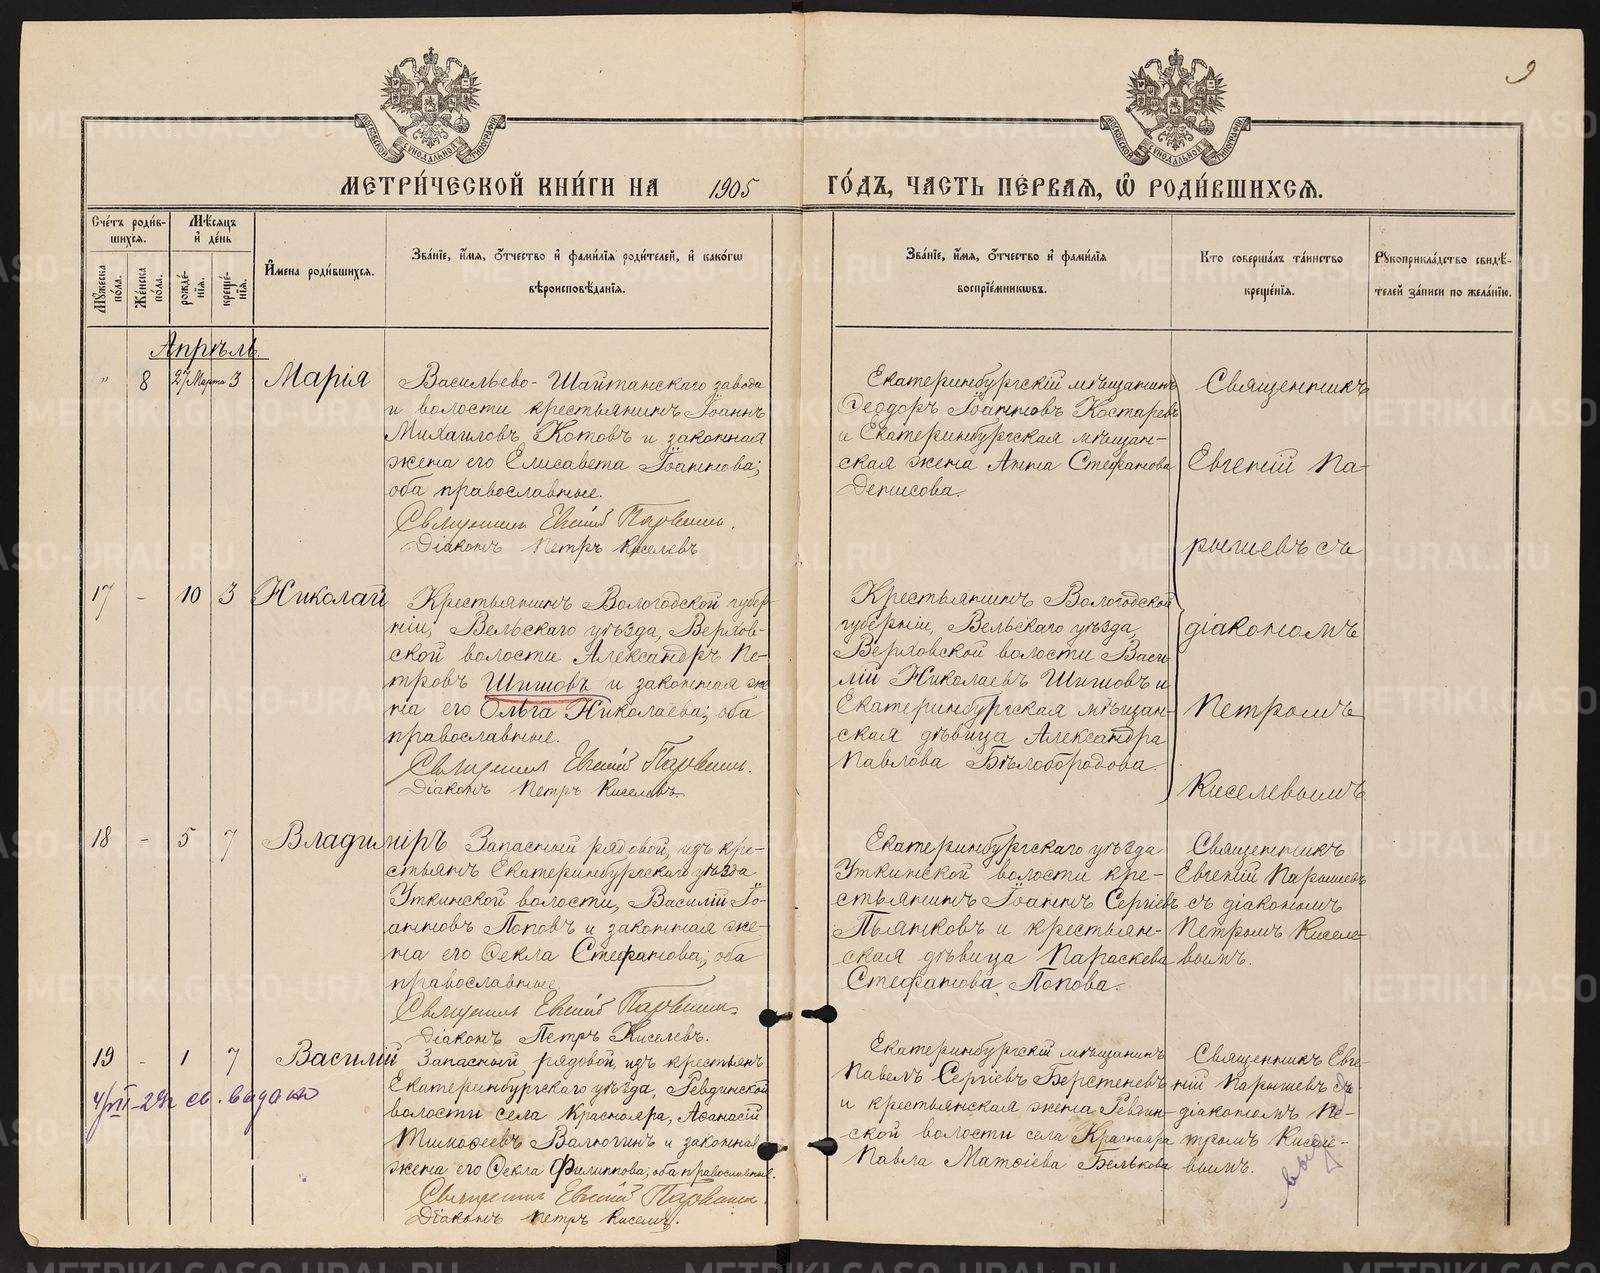 9
МЕТРИ́ЧЕСКОЙ КНИ́ГИ НА 1905 ГО́ДЪ, ЧА́СТЬ ПЕ́РВАЯ, Ѽ РОДИ́ВШИХСЯ.
Сче́тъ роди́в-
шихся.
Мѣ́сяцъ
и де́нь
Му́жеска по́ла.
Же́нска по́ла.
рожде́-
нія.
креще́-
нія.
Имена роди́вшихся.
Зва́ніе, и́мя, ѻ́тчество и фами́лія роди́телей, и како́гѡ
вѣроисповѣ́данія.
Зва́ніе, и́мя, ѻ́тчество и фами́лія
воспріе́мникѡвъ.
Кто соверша́лъ та́инство
креще́нія.
Рукоприкла́дство свидѣ́-
телей за́писи по жела́нію.
Апрѣль.
" 8 27 Марта 3 Марія
Васильево-Шайтанскаго завода
и волости крестьянинъ Іоаннъ
Михаиловъ Котовъ и законная
жена его Елисавета Іоаннова;
оба православные.
Священникъ Евгеній Парышевъ.
Діаконъ Петръ Киселевъ
Екатеринбургскій мѣщанинъ
Ѳеодоръ Іоанновъ Костаревъ
и Екатеринбургская мѣщан-
ская жена Анна Стефанова
Денисова.
Священникъ
Евгеній Па-
рышевъ съ
діакономъ
Петромъ
Киселевымъ
17 - 10 3 Николай
Крестьянинъ Вологодской губер-
ніи, Вельскаго уѣзда, Верхов-
ской волости Александръ Пе-
тровъ Шишовъ и законная же-
на его Ольга Николаева; оба
православные.
Священникъ Евгеній Парышевъ.
Діаконъ Петръ Киселевъ
Крестьянинъ Вологодской
губерніи, Вельскаго уѣзда,
Верховской волости Васи-
лій Николаевъ Шишовъ и
Екатеринбургская мѣщан-
ская дѣвица Александра
Павлова Бѣлобородова.
18 - 5 7 Владиміръ
Запасный рядовой, изъ кре-
стьянъ Екатеринбургскаго уѣзда
Уткинской волости, Василій Іо-
анновъ Поповъ и законная же-
на его Ѳекла Стефанова; оба
православные.
Священникъ Евгеній Парышевъ.
Діаконъ Петръ Киселевъ.
Екатеринбургскаго уѣзда
Уткинской волости кре-
стьянинъ Іоаннъ Сергіевъ
Пьянковъ и крестьян-
ская дѣвица Параскева
Стефанова Попова.
Священникъ
Евгеній Парышевъ
съ діакономъ
Петромъ Киселе-
вымъ.
19 - 1 7 Василій
Запасный рядовой, изъ крестьянъ
Екатеринбургскаго уѣзда, Ревдинской
волости села Краснояра, Аѳанасій
Тимоѳеевъ Валюгинъ и законная
жена его Ѳекла Филиппова; оба православные.
Священникъ Евгеній Парышевъ.
Діаконъ Петръ Киселевъ.
Екатеринбургскій мѣщанинъ
Павелъ Сергіевъ Берстеневъ
и крестьянская жена Ревдин-
ской волости села Краснояра
Павла Матѳіева Бѣлькова
Священникъ Евге-
ній Парышевъ съ
діакономъ Пе-
тромъ Киселе-
вымъ.
METRIKI.GASO-URAL.RU